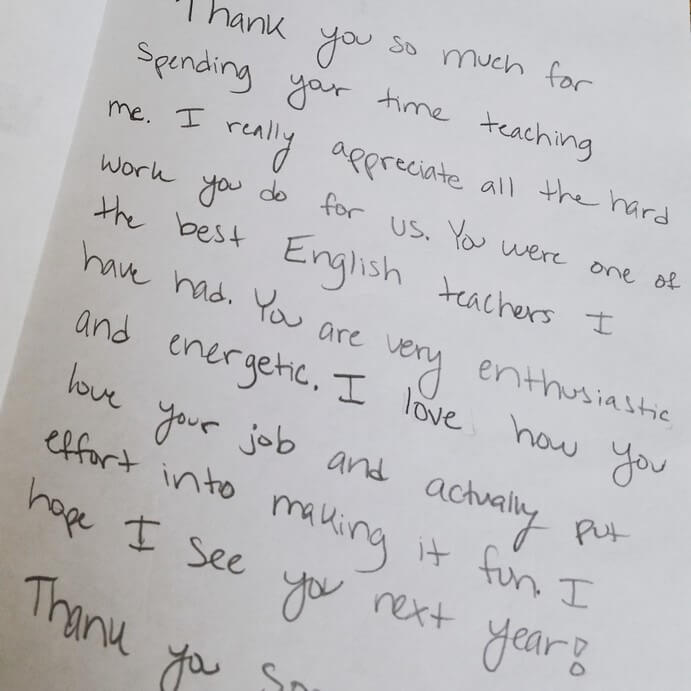 Thank you so much for
spending your time teaching
me. I really appreciate all the hard
work you do for us. You were one of
the best English teachers I
have had. You are very enthusiastic
and energetic. I love how you
love your job and actually put
effort into making it fun. I
hope I see you next year!
Thank you so